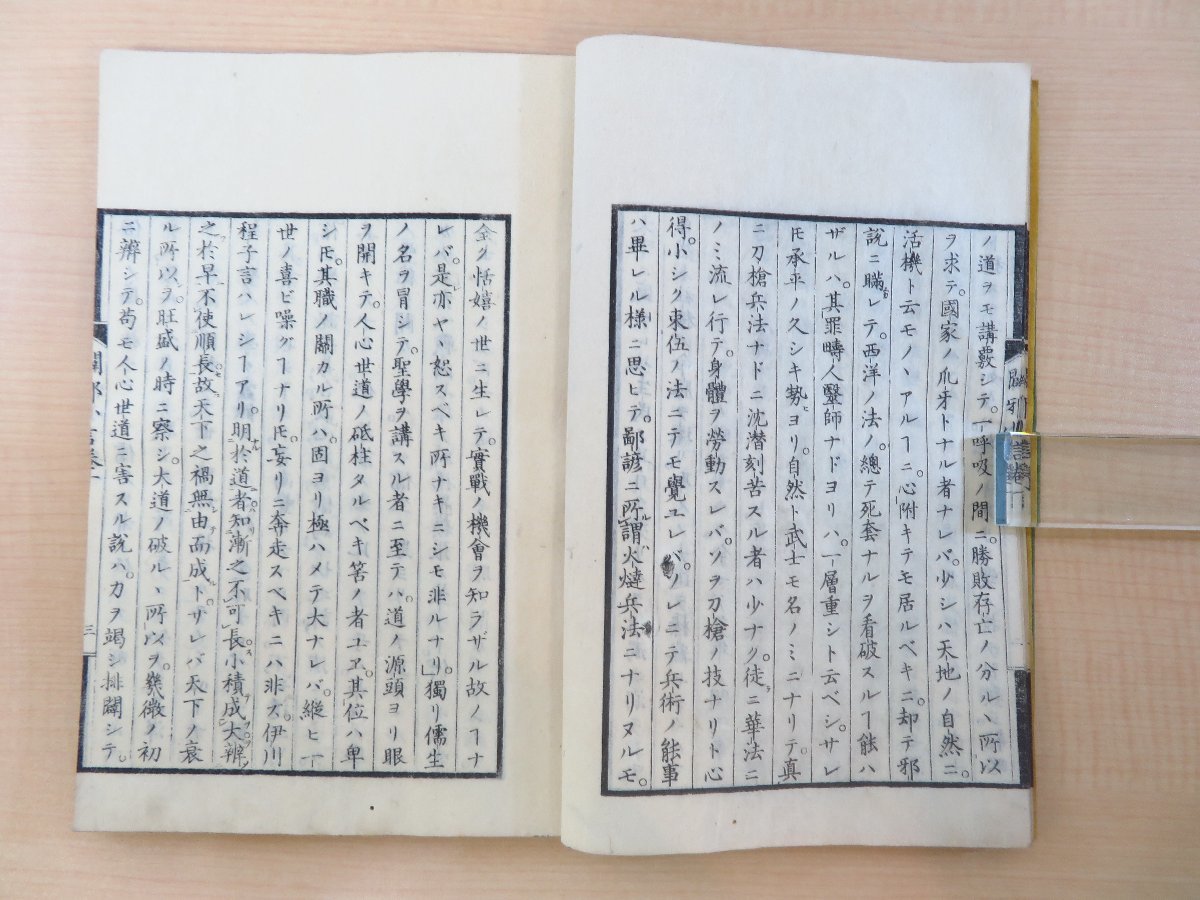 ノ道ヲモ講覈シテ。一呼吸ノ間ニ。勝敗存亡ノ分ルヽ所以
ヲ求テ。國家ノ爪牙トナル者ナレバ。少シハ天地ノ自然ニ。
活機ト云モノヽアルヿニ。心附キテモ居ルベキニ。却テ邪
説ニ瞞レテ。西洋ノ法ノ。總テ死套ナルヲ看破スルヿ能ハ
ザルハ。其罪疇人毉師ナドヨリハ。一層重シト云ベシ。サレ
𪜈承平ノ久シキ勢ヨリ。自然ト武士モ名ノミニナリテ。真
ニ刀槍兵法ナドニ沈潜刻苦スル者ハ少ナク。徒ニ華法ニ
ノミ流レ行テ。身體ヲ勞動スレバ。ソヲ刀槍ノ技ナリト心
得。小シク束伍ノ法ニテモ覺ユレバ。ソレニテ兵術ノ能事
ハ畢レル様ニ思ヒテ。鄙諺ニ所謂火燵兵法ニナリヌルモ。
全ク恬嬉ノ世ニ生レテ。實戰ノ機會ヲ知ラザル故ノヿナ
レバ。是亦ヤヽ恕スベキ所ナキニシモ非ルナリ。獨リ儒生
ノ名ヲ冒シテ。聖學ヲ講スル者ニ至テハ。道ノ源頭ヨリ眼
ヲ開キテ。人心世道ノ砥柱タルベキ筈ノ者ユヱ。其位ハ卑
シ𪜈。其職ノ關カル所ハ。固ヨリ極ハメテ大ナレバ。縱ヒ一
世ノ喜ビ噪グヿナリ𪜈。妄リニ奔走スベキニハ非ス。伊川
程子言ハレシヿアリ。明於道者。知漸之不可長。小積成大。辨
之於早。不使順長。故天下之禍無由而成ト。サレバ天下ノ衰
ル所以ヲ。旺盛ノ時ニ察シ。大道ノ破ルヽ所以ヲ。幾微ノ初
ニ辨シテ。苟モ人心世道ニ害スル説ハ。力ヲ竭シ排闢シテ。
三